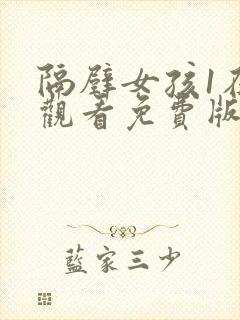 隔壁女孩1在
觀看免費版
藍家三少